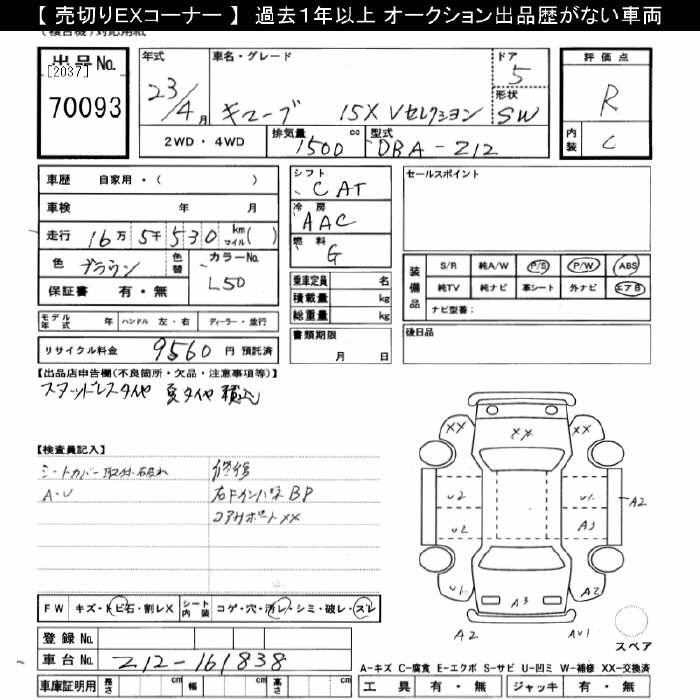 【 売切りEXコーナー 】 過去1年以上 オークション出品歴がない車両
(複合機)対応用紙
出品No.
[2037]
70093
年式 車名・グレード ドア
23/4月 キューブ 15X Vセレクション 5
形状
SW
2WD・4WD 排気量 1500 cc 型式 DBA-Z12
評価点
R
内装 C
車歴 自家用・( )
車検 年 月
走行 16万5千530 km マイル( )
色 ブラウン 色替 カラーNo. L50
保証書 有・無
モデル年式 年 ハンドル 左・右 ディーラー・並行
リサイクル料金 9560 円 預託済
シフト
CAT
冷房
AAC
燃料
G
乗車定員 名
積載量 kg
総重量 kg
書類期限
月 日
セールスポイント
装備品
S/R 純A/W P/S P/W ABS
純TV 純ナビ 革シート 外ナビ エアB
ナビ型番:
後日品
【出品店申告欄(不良箇所・欠品・注意事項等)】
スタッドレスタイヤ 夏タイヤ 積込
【検査員記入】
シートカバー取付・破れ
A・U
修復
右Fインパネ BP
コアサポート XX
XX XX XX
U2 U1 A2
U2 A3
U1 A3 A2
A2 AU1
スペア
FW キズ・トビ石・割レX シート内装 コゲ・穴・汚レ・シミ・破レ・スレ
登録No.
車台No. Z12-161838
車庫証明用 長さ cm 幅 cm 高さ cm
A-キズ C-腐食 E-エクボ S-サビ U-凹ミ W-補修 XX-交換済
工具 有・無 ジャッキ 有・無